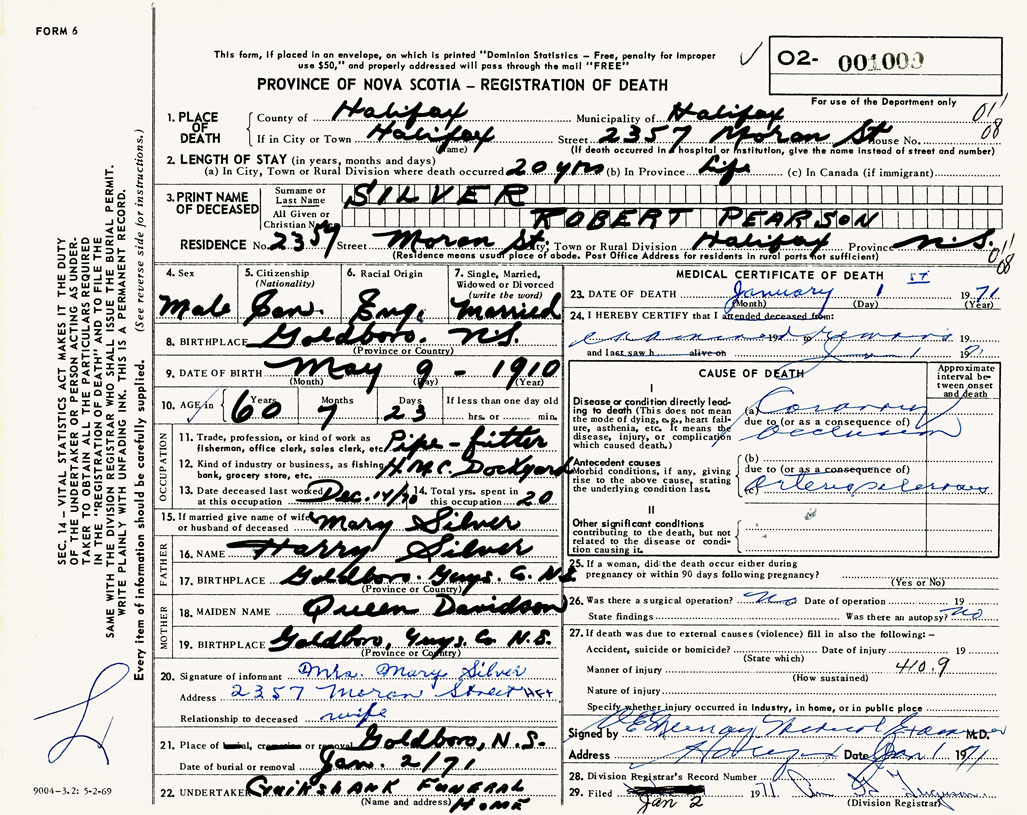 FORM 6
This form, if placed in an envelope, on which is printed "Dominion Statistics – Free, penalty for improper
use $50," and properly addressed will pass through the mail "FREE"
O2- 001009
For use of the Department only
PROVINCE OF NOVA SCOTIA – REGISTRATION OF DEATH
1. PLACE OF DEATH
County of Halifax Municipality of Halifax
If in City or Town Halifax Street 2357 Moran St House No.
(Name) (If death occurred in hospital or institution, give the name instead of street and number)
011
08
2. LENGTH OF STAY (in years, months and days)
(a) In City, Town or Rural Division where death occurred 20 yrs (b) In Province Life (c) In Canada (if immigrant)
3. PRINT NAME OF DECEASED
Surname or Last Name SILVER
All Given or Christian Names ROBERT PEARSON
RESIDENCE No. 2357 Street Moran St. City, Town or Rural Division Halifax Province N.S.
(Residence means usual place of abode. Post Office Address for residents in rural parts not sufficient)
011
08
4. Sex
Male
5. Citizenship
(Nationality)
Can.
6. Racial Origin
Eng.
7. Single, Married,
Widowed or Divorced
(write the word)
Married
8. BIRTHPLACE Goldboro. N.S.
(Province or Country)
9. DATE OF BIRTH May 9 - 1910
(Month) (Day) (Year)
10. AGE in Years 60 Months 7 Days 23
If less than one day old
hrs. or min.
OCCUPATION
11. Trade, profession, or kind of work as Pipe-fitter
fishermon, office clerk, sales clerk, etc.
12. Kind of industry or business, as fishing, H.M.C. Dockyard
bank, grocery store, etc.
13. Date deceased last worked at this occupation Dec. 14/70
14. Total yrs. spent in this occupation 20
15. If married give name of wife or husband of deceased Mary Silver
FATHER
16. NAME Harry Silver
17. BIRTHPLACE Goldboro. Guys. Co. N.S
(Province or Country)
MOTHER
18. MAIDEN NAME Queen Davidson
19. BIRTHPLACE Goldboro, Guys. Co N.S.
(Province or Country)
20. Signature of informant Mrs. Mary Silver
Address 2357 Moran Street Hfx
Relationship to deceased wife
21. Place of burial, cremation or removal Goldboro, N.S.
Date of burial or removal Jan. 2/71
22. UNDERTAKER Cruikshank Funeral Home
(Name and address)
MEDICAL CERTIFICATE OF DEATH
23. DATE OF DEATH January 1 ST 1971
(Month) (Day) (Year)
24. I HEREBY CERTIFY that I attended deceased from:
19 to 19
and last saw h alive on 19
CAUSE OF DEATH
Approximate interval between onset and death
I
Disease or condition directly leading to death (This does not mean the mode of dying, e.g., heart failure, asthenia, etc. It means the disease, injury, or complication which caused death.)
(a) Coronary
due to (or as a consequence of)
occlusion
Antecedent causes
Morbid conditions, if any, giving rise to the above cause, stating the underlying condition last.
(b)
due to (or as a consequence of)
(c) Arteriosclerosis
II
Other significant conditions
contributing to the death, but not related to the disease or condition causing it.
25. If a woman, did the death occur either during
pregnancy or within 90 days following pregnancy?
(Yes or No)
26. Was there a surgical operation? No Date of operation 19
State findings Was there an autopsy? No
27. If death was due to external causes (violence) fill in also the following: –
Accident, suicide or homicide? Date of injury 19
(State which)
Manner of injury 410.9
(How sustained)
Nature of injury
Specify whether injury occurred in Industry, in home, or in public place
Signed by Medical Examiner M.D.
Address Date Jan 1 1971
28. Division Registrar's Record Number
29. Filed Jan 2 1971
(Division Registrar)
SEC. 14 – VITAL STATISTICS ACT MAKES IT THE DUTY
OF THE UNDERTAKER OR PERSON ACTING AS UNDER-
TAKER TO OBTAIN ALL THE PARTICULARS REQUIRED
IN THE "REGISTRATION OF DEATH" AND TO FILE THE
SAME WITH THE DIVISION REGISTRAR WHO SHALL ISSUE THE BURIAL PERMIT.
WRITE PLAINLY WITH UNFADING INK. THIS IS A PERMANENT RECORD.
Every item of information should be carefully supplied. (See reverse side for instructions.)
9004-3.2: 5-2-69